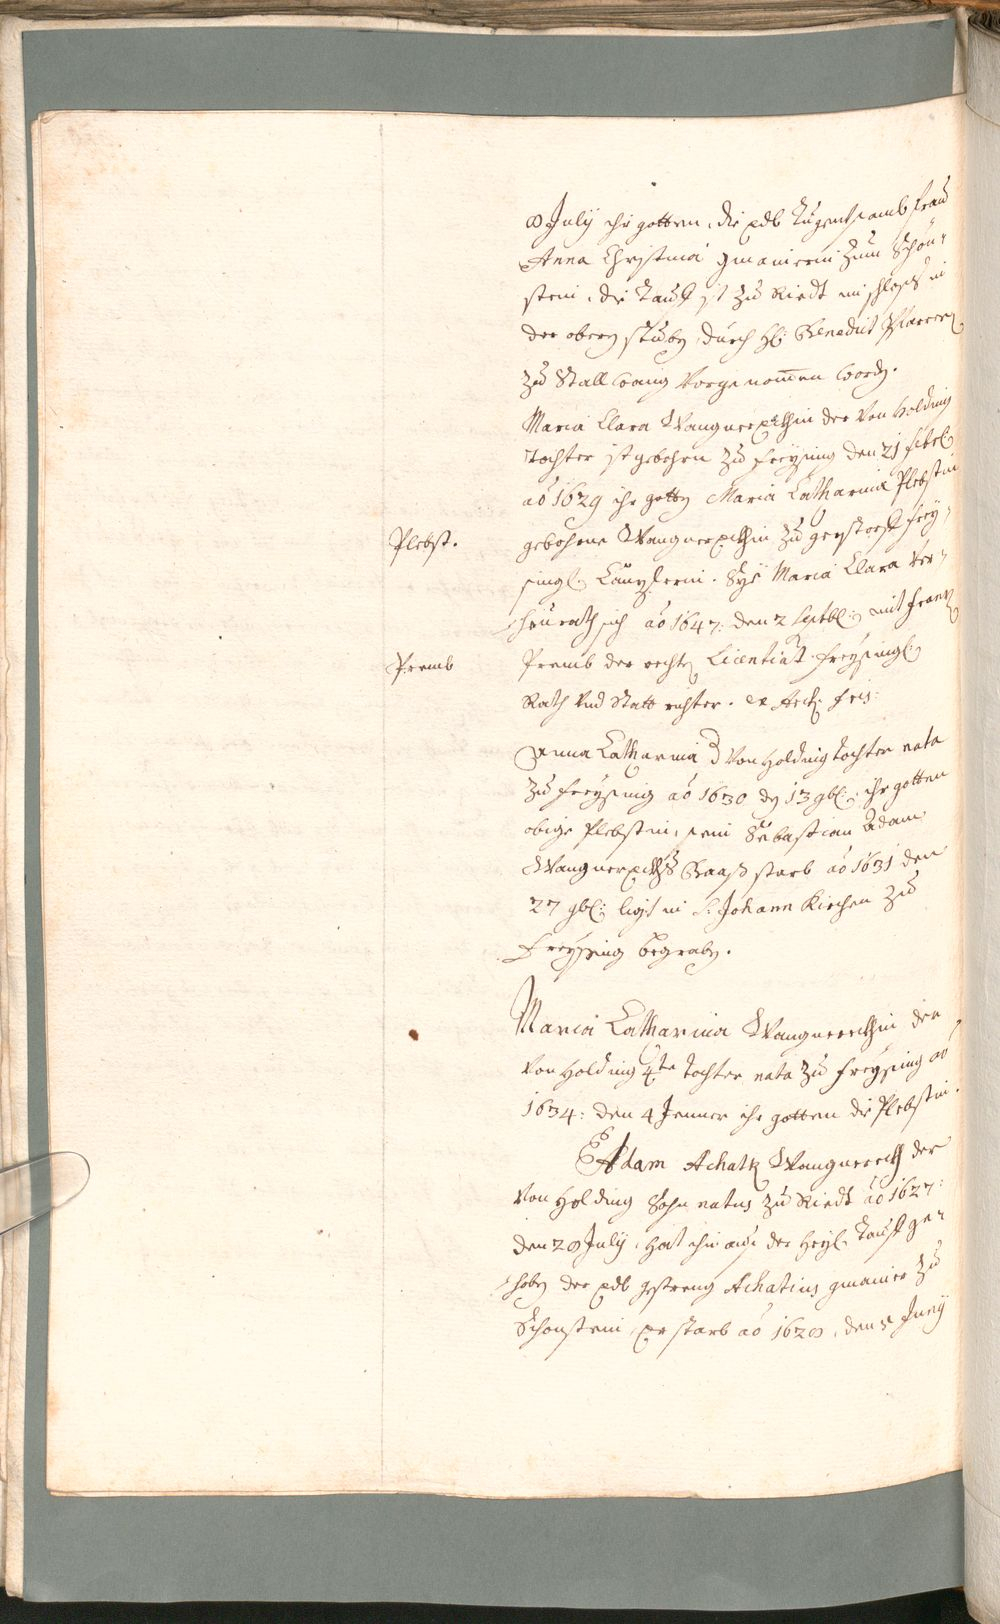 8 July ihr gotten, die edl Tugentsamb frau
Anna Christina Gmainerin zum Schön-
stein, die Tauff ist zu Riedt im schloss in
der obern stuben durch H: Benedict Pfarrern
zu Stallwang vorgenommen worden.
Maria Clara Wangnereckhin der von Holding
Tochter ist gebohrn zu Freysing den 21 febr:
aō 1629 ihr gotten Maria Catharina Plebstin
Plebst. gebohrne Wangnereckhin zu geystorff frey-
singl: Canzlerin. Sye Maria Clara ver-
heurath sich aō 1647: den 2 Septbr: mit Franz
Premb Premb der rechten Licentiat freysingl:
Rath und Statt richter. ex Act: fris:
Anna Catharina 3 von Holding Tochter nata
zu Freysing aō 1630 den 13 9br: ihr gotten
obige Plebstin, sein Sebastian Adam
Wangnereckhs Baaß starb aō 1631 den
27 9br: ligt in S: Johann Kirchen zu
Freysing begraben.
Maria Catharina Wangnereckhin der
von Holding 4te Tochter nata zu Freysing aō
1634: den 4 Jenner ihr gotten die Plebstin.
Adam Achatz Wangnereckh der
von Holding Sohn natus zu Riedt aō 1627:
den 28 July, hat ihn auß der heyl: Tauff ge-
hoben der edl gestreng Achatius Gmainer zu
Schonstein, er starb aō 1628, den 5 Juny